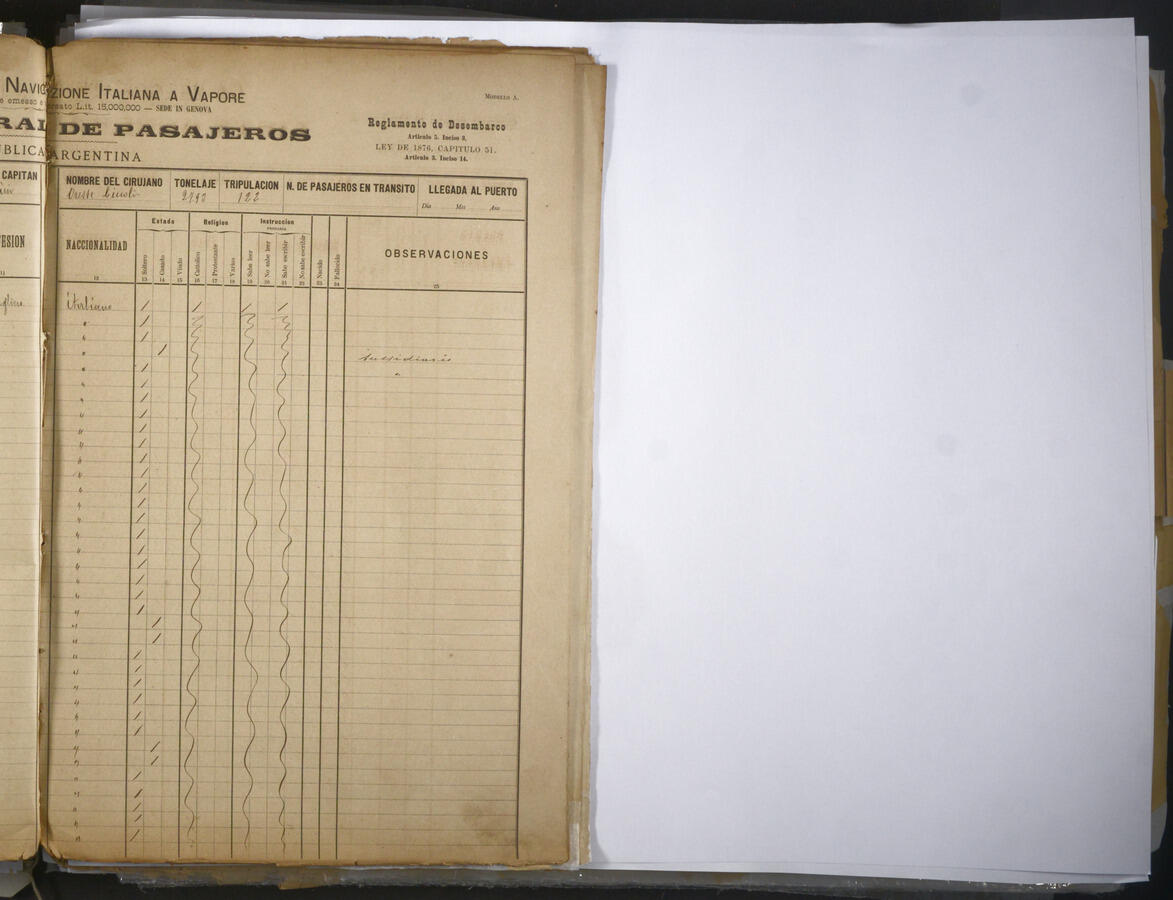 NAVIGAZIONE ITALIANA A VAPORE
Lit. 15,000,000 — SEDE IN GENOVA
RAL DE PASAJEROS
UBLICA ARGENTINA
MODELLO A.
Reglamento de Desembarco
Artículo 5. Inciso 8,
LEY DE 1876, CAPITULO 51.
Artículo 3. Inciso 14.
CAPITAN
NOMBRE DEL CIRUJANO
TONELAJE
TRIPULACION
N. DE PASAJEROS EN TRANSITO
LLEGADA AL PUERTO
Oreste
2793
122
Día Mes Año
ESION
11
NACCIONALIDAD
12
Estado
Religion
Instruccion
PRIMARIA
Soltero
Casado
Viudo
Catolico
Protestante
Varios
Sabe leer
No sabe leer
Sabe escribir
No sabe escribir
Nacido
Fallecido
13 14 15 16 17 18 19 20 21 22 23 24
OBSERVACIONES
25
italiano